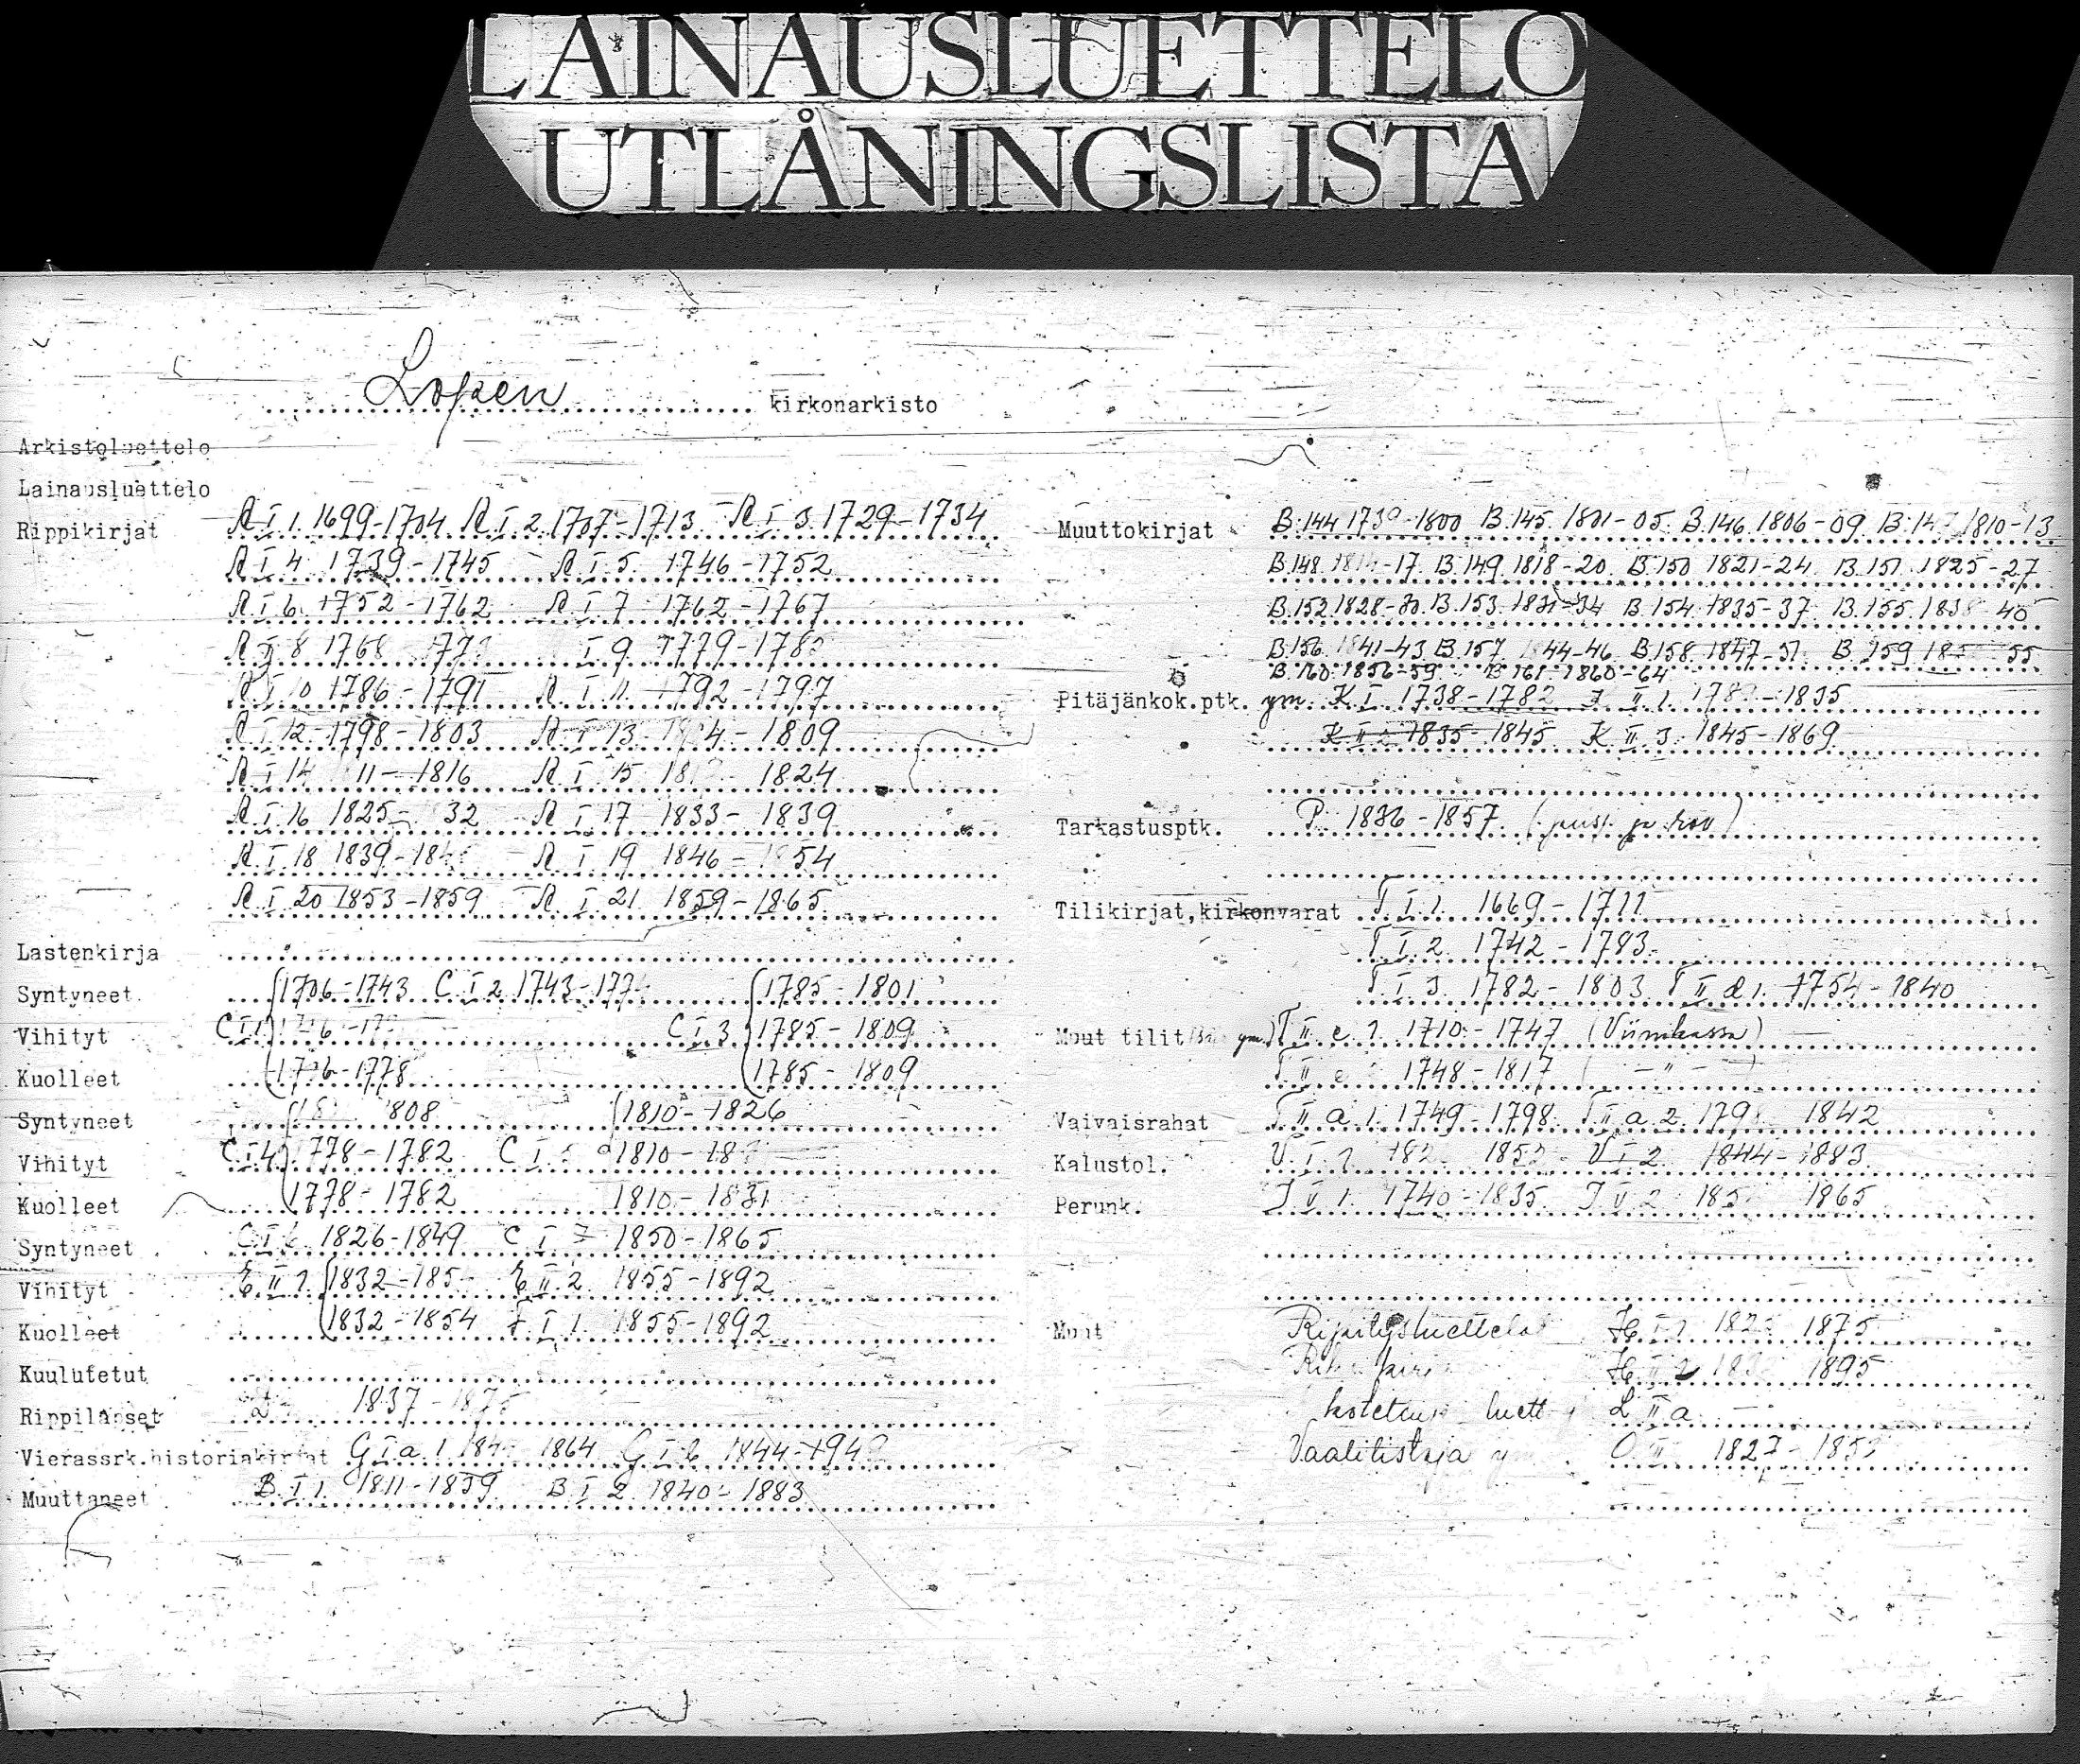 LAINAUSLUETTELO
UTLÅNINGSLISTA
Lopen kirkonarkisto
Arkistoluettelo
Lainausluettelo
Rippikirjat A I 1. 1699-1704 A I 2 1707-1713 A I 3 1729-1734
A I 4 1739-1745 A I 5. 1746-1752
A I 6 1752-1762 A I 7 1762-1767
A I 8 1768 I 9 1779-
A I 10 1786-1791 A I 11 1792-1797
A I 12 1798-1803 A I 13 - 1809
A I 14 - 1816 A I 15 - 1824
A I 16 1825- 32 A I 17 1833-1839
A I 18 1839- A I 19 1846- 54
A I 20 1853-1859 A I 21 1859-1865
Lastenkirja
Syntyneet 1706-1743 C I 2 1743- 1785-1801
Vihityt C I 1 C I 3 1785-1809
Kuolleet -1778 1785-1809
Syntyneet 808 1810-1826
Vihityt C I 4 1778-1782 C I 1810-
Kuolleet 1778-1782 1810-1831
Syntyneet C I 6 1826-1849 C I 7 1850-1865
Vihityt E II 1 1832-185 E II 2 1855-1892
Kuolleet 1832-1854 F I 1 1855-1892
Kuulutetut
Rippilapset 1837-
Vierassrk.historiakirjat G I a 1 1864 G I b 1844-
Muuttaneet B I 1 1811-1839 B I 2 1840-1883
Muuttokirjat B.144 1739-1800 B.145. 1801-05. B.146. 1806-09 B.147 1810-13
B.148 -17. B.149. 1818-20. B.150 1821-24 B.151 1825-27
B.152 1828-30. B.153. 1831-34 B.154 1835-37 B.155. 1838-40
B.156. 1841-43 B.157 1844-46 B.158 1847-51 B 159 55
B.160. 1856-59 B 161. 1860-64
Pitäjänkok.ptk. ym. K I 1738-1782 II 1. -1835
K II 2 1835-1845 K II 3 1845-1869
Tarkastusptk. P. 1836-1857
Tilikirjat,kirkonvarat T I 1 1669-1711
T I 2 1742-1783
T I 3 1782-1803 T II d 1. 1754-1840
Muut tilit ym.) T II e 1 1710-1747 (Viinikassa)
T II e 1748-1817 ( -"- )
Vaivaisrahat T II a 1. 1749-1798 T II a 2 1842
Kalustol. U I 1 U I 2 1844-1883
Perunk. J V 1 1740-1835 J V 2 1865
Muut Ripitysluettelot H I 1 1875
H II 2 1895
luett L II a
Vaalilistoja O II 1827-